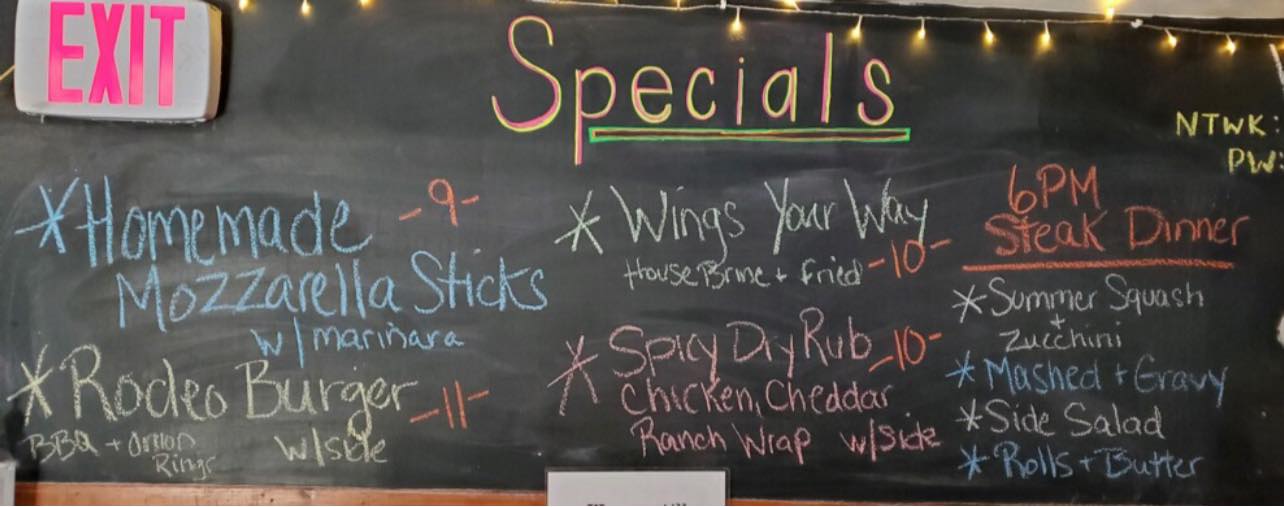 EXIT
Specials
*Homemade -9-
Mozzarella Sticks
w/marinara
*Rodeo Burger -11-
BBQ + Onion
Rings
w/side
* Wings Your Way
House Brine + Fried -10-
* Spicy Dry Rub -10-
Chicken, Cheddar
Ranch Wrap w/side
6PM
Steak Dinner
*Summer Squash
+
Zucchini
*Mashed + Gravy
*Side Salad
*Rolls + Butter
NTWK:
PW: